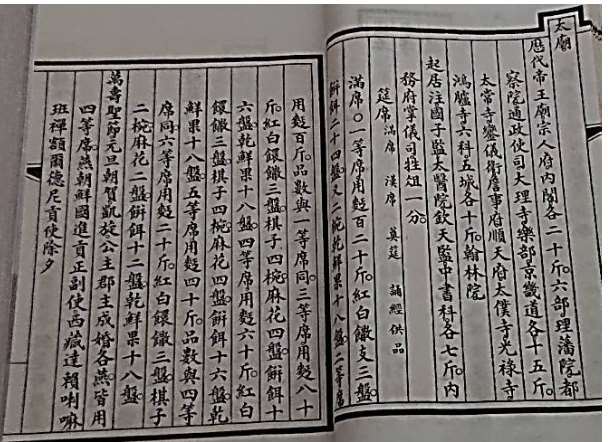 太廟
歷代帝王廟宗人府內閣各二十斤六部理藩院都
察院通政使司大理寺樂部京畿道各十五斤
太常寺鑾儀衛詹事府順天府太僕寺光祿寺
鴻臚寺六科五城各十斤翰林院
起居注國子監太醫院欽天監中書科各七斤內
務府掌儀司牲俎一分
筵席 滿席 漢席 奠筵 誦經供品
滿席○一等席用麪百二十斤紅白饊支三盤
餅餌二十四盤又二椀乾鮮果十八盤二等席
用麪百斤品數與一等席同三等席用麪八十
斤紅白饊三盤棋子四椀麻花四盤餅餌十
六盤乾鮮果十八盤四等席用麪六十斤紅白
饊三盤棋子四椀麻花四盤餅餌十六盤乾
鮮果十八盤五等席用麪四十斤品數與四等
席同六等席用麪二十斤紅白饊三盤棋子
二椀麻花二盤餅餌十二盤乾鮮果十八盤
萬壽聖節元旦朝賀凱旋公主郡主成婚各燕皆用
四等席燕朝鮮國進貢正副使西藏達賴喇嘛
班禪額爾德尼貢使除夕